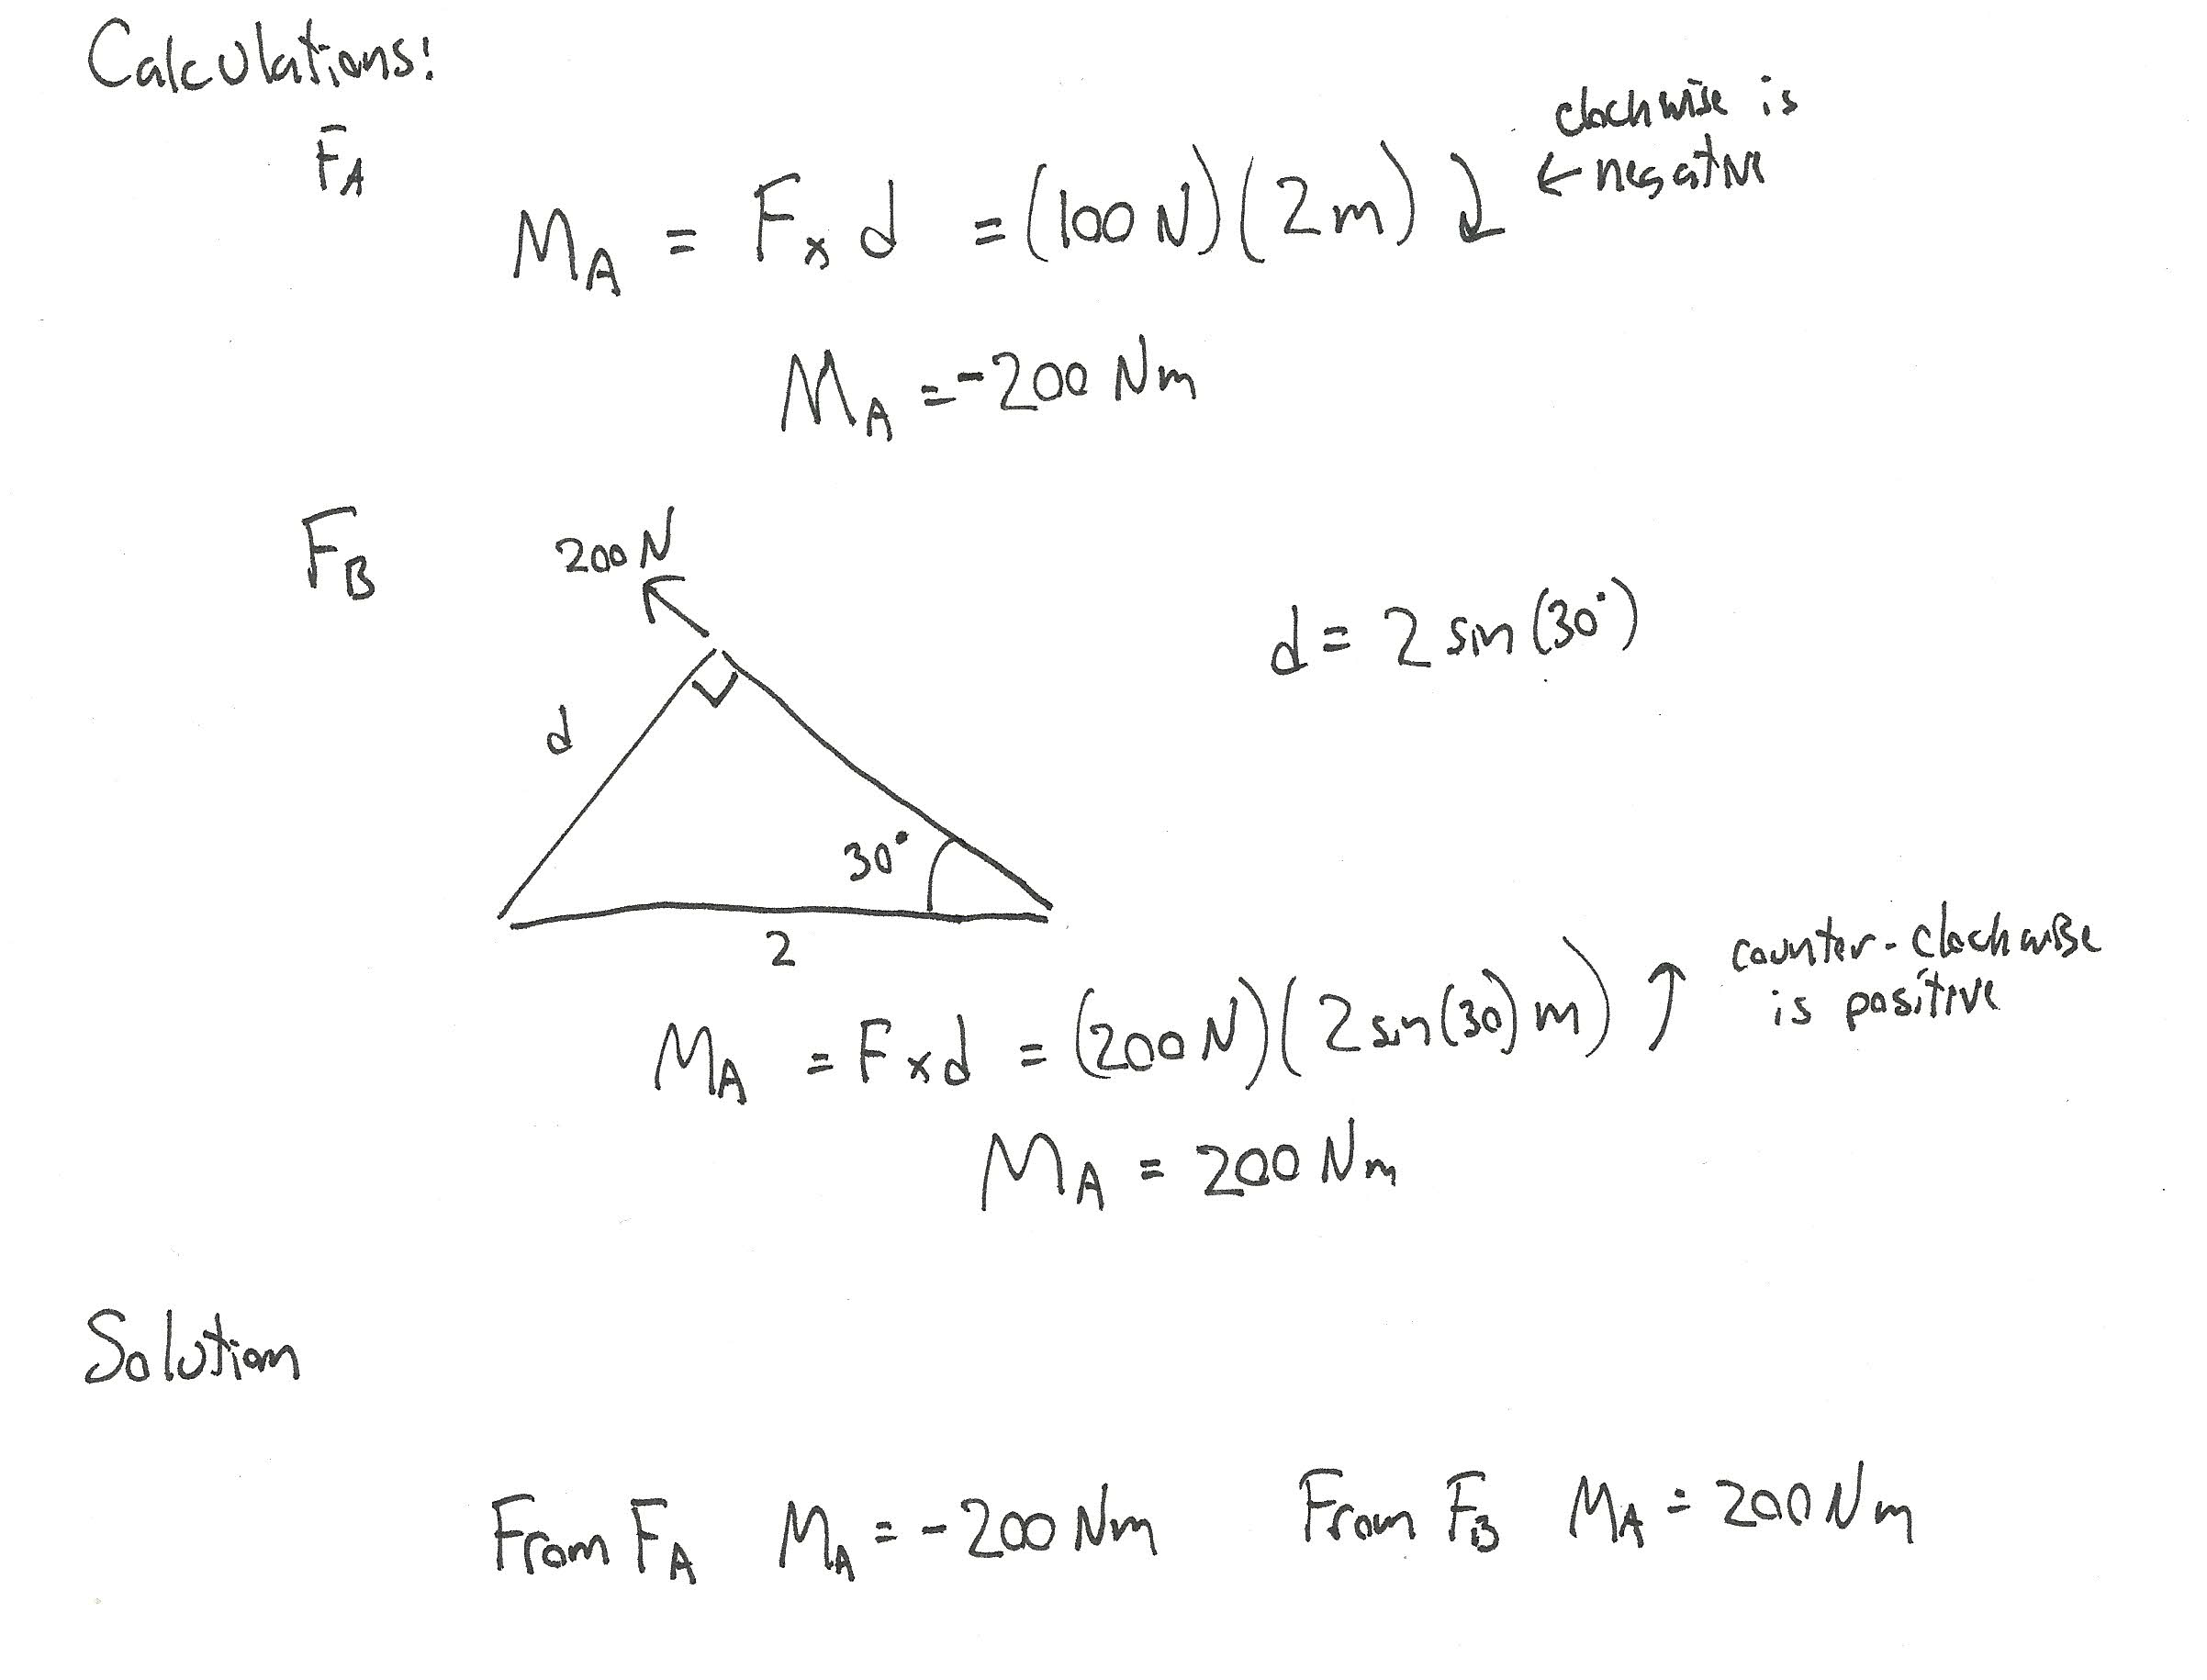 Calculations:
F_A
M_A = F x d = (100 N)(2 m) ↓ ← clockwise is negative
M_A = -200 Nm
F_B
200 N
d = 2 sin(30°)
d
30°
2
M_A = F x d = (200 N)(2 sin(30) m) ↑ counter-clockwise is positive
M_A = 200 Nm
Solution
From F_A M_A = -200 Nm From F_B M_A = 200 Nm